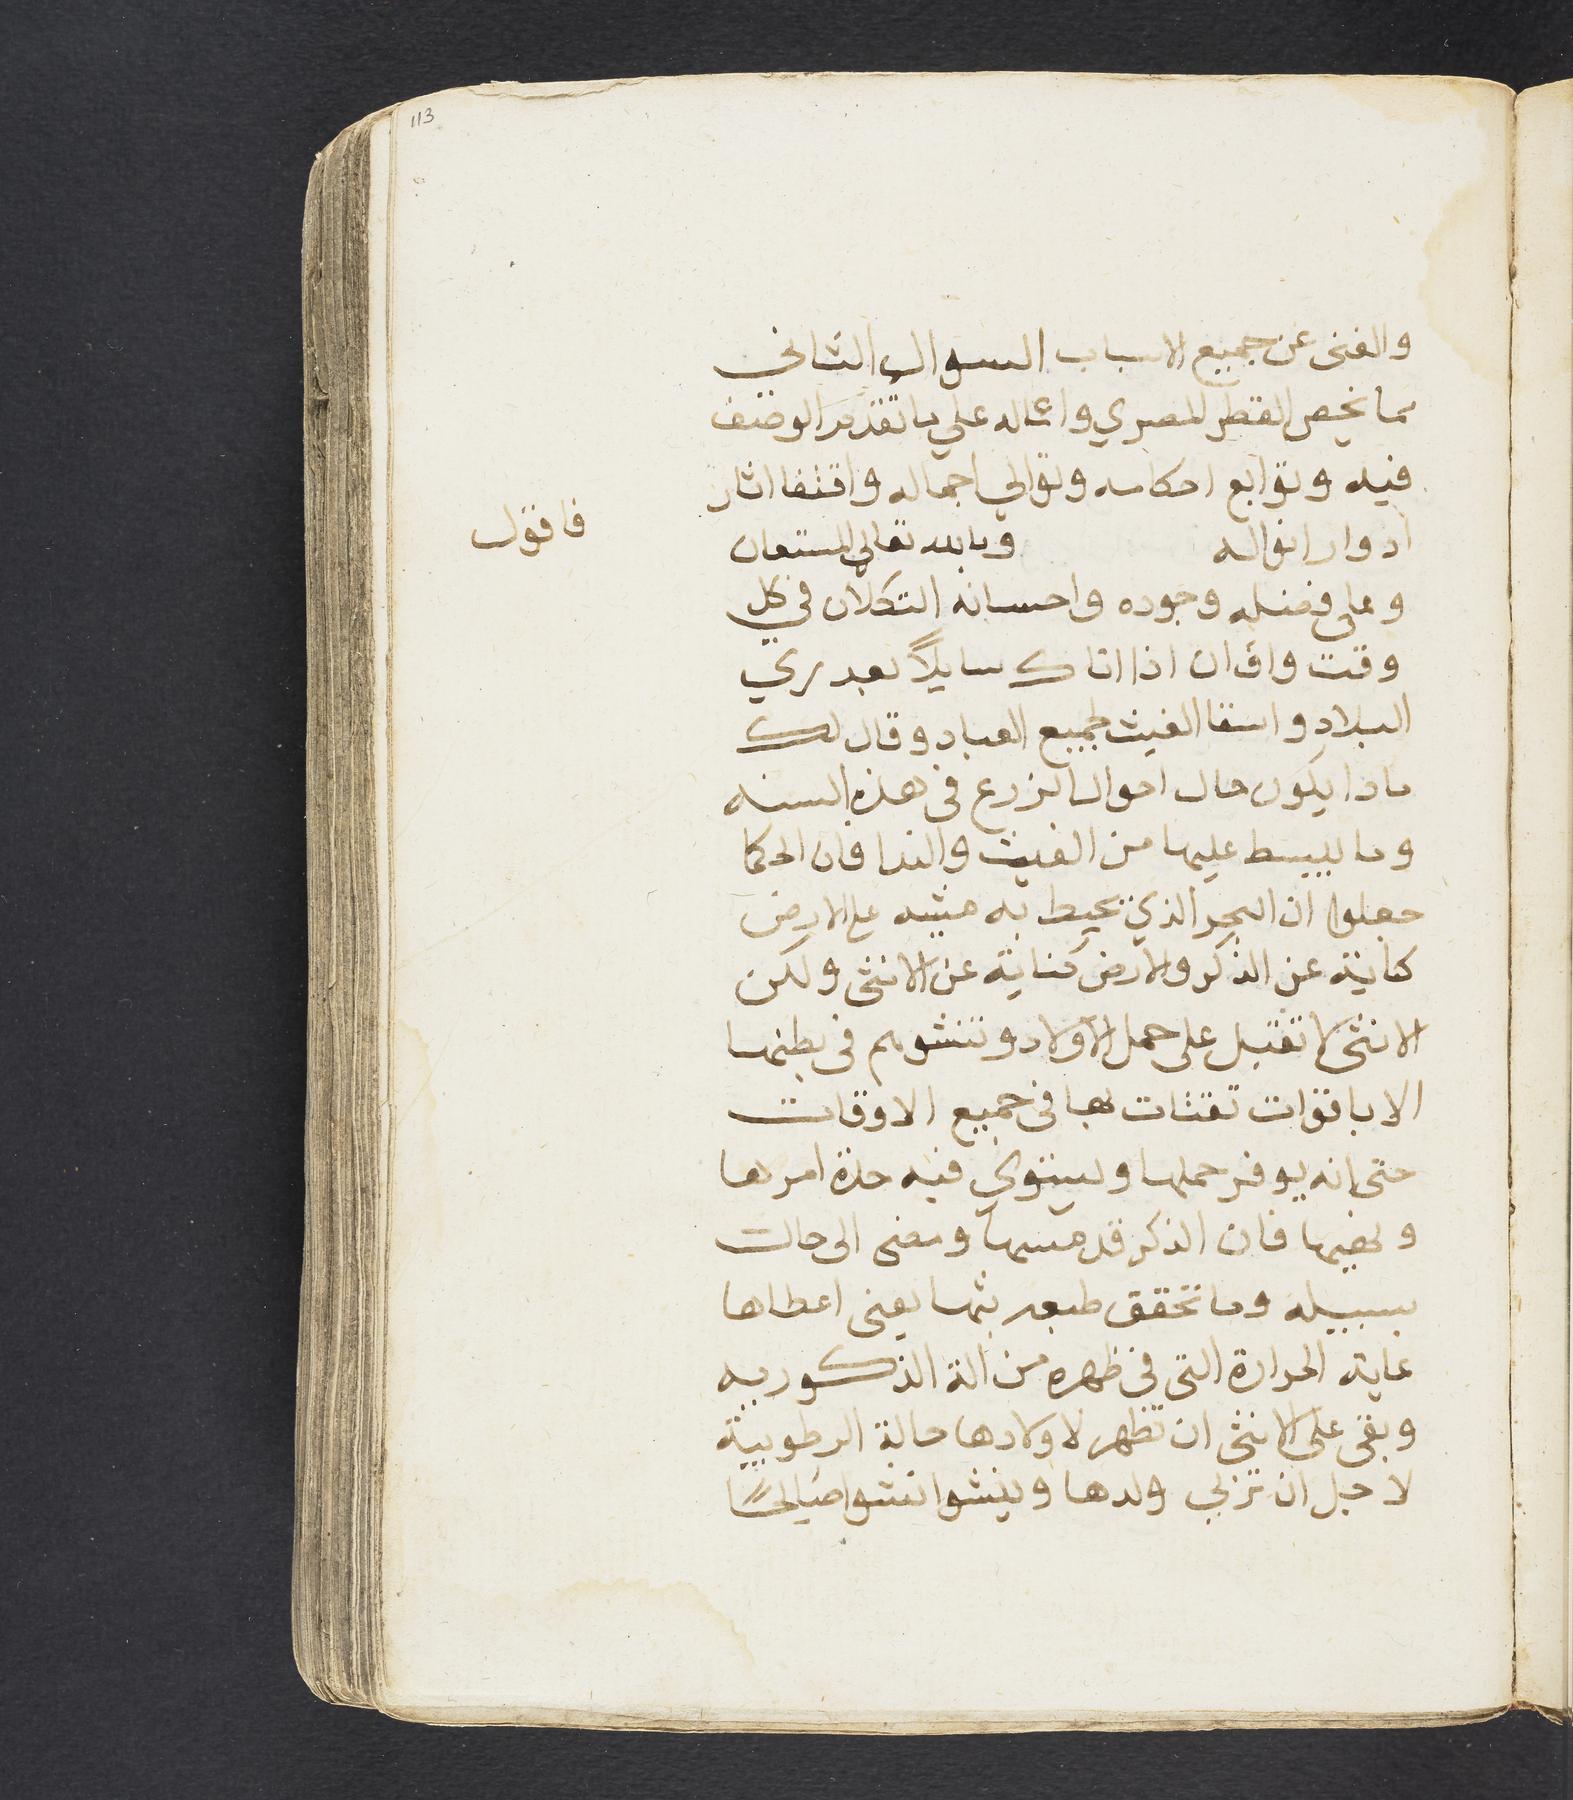 113
والغنى عن جميع الاسباب السوال الثاني
مما يخص القطر المصري وامثاله على ما تقدم من الوصف
فيه وتوابع احكامه وتوالي اجماله واقتفا اثار
ادوار انواله وبالله تعالى المستعان
فاقول
وعلى فضله وجوده واحسانه التكلان في كل
وقت واوان اذا اتاك سايلاً بعد ري
البلاد واسقا الغيث لجميع العباد وقال لك
ماذا يكون حال احوال الزرع في هذه السنه
وما يبسط عليها من الغيث والندا فان الحكما
جعلوا ان البحر الذي يحيط به مشيه على الارض
كناية عن الذكر والارض كناية عن الانثى ولكن
الانثى لا تقبل على حمل الاولاد وتنشوهم في بطنها
الا باقوات تقتات بها في جميع الاوقات
حتى انه يوفر حملها ويستوي فيه مدة امرها
فان الذكر قد مسها ومضى الى حالت
سبيله وما تحقق طبعه يعني اعطاها
غاية الحرارة التى في ظهره من الة الذكوريه
وبقى على الانثى ان تظهر لاولادها حالة الرطوبية
لاجل ان تربي ولدها وينشوا نشوا صالحاً